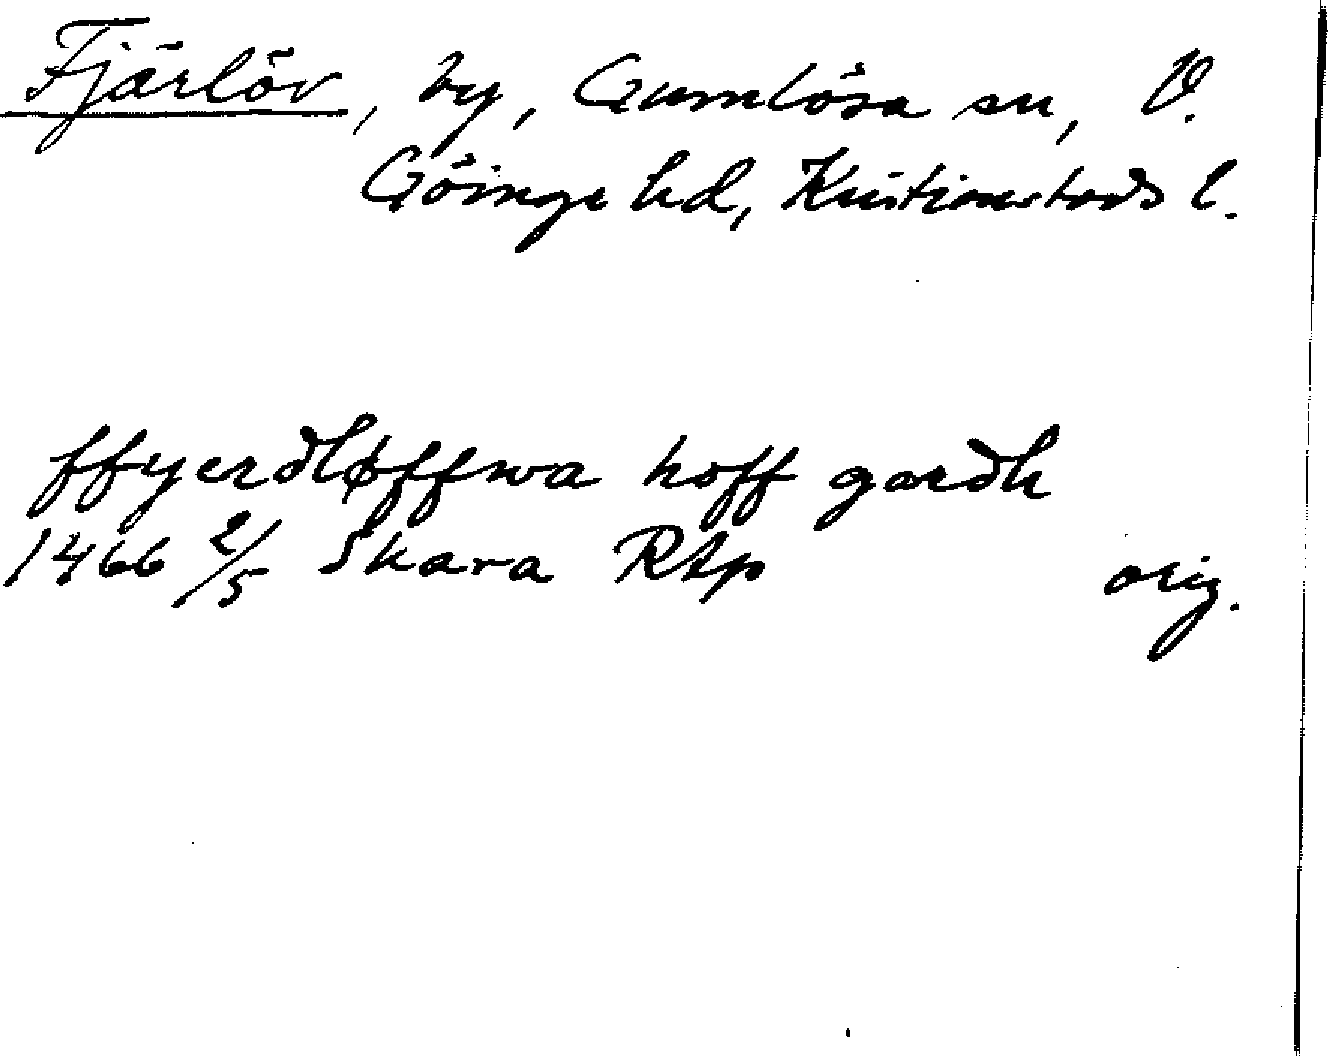 Fjärlöv, by, Gumlösa sn, V.
Göinge hd, Kristianstads l.
ffyerdløffwa hoff gardh
1466 2/5 Skara RAp orig.